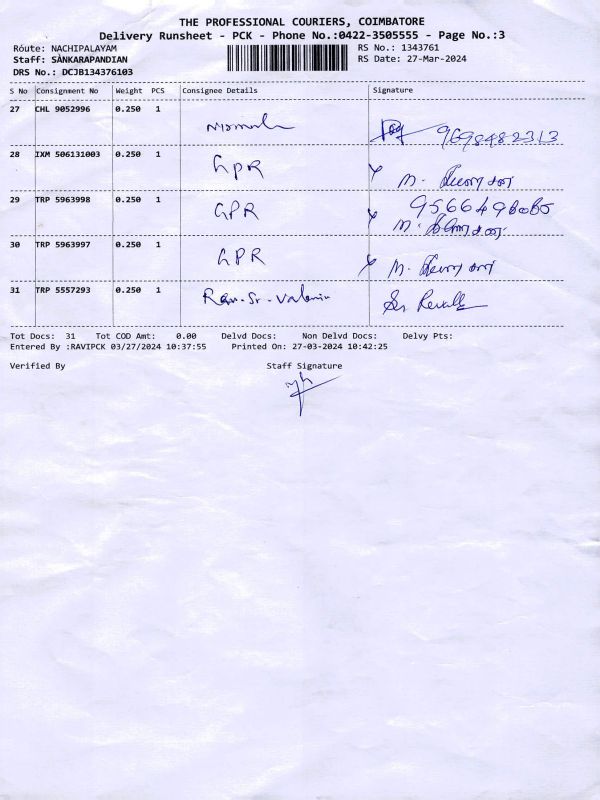 THE PROFESSIONAL COURIERS, COIMBATORE
Delivery Runsheet - PCK - Phone No.:0422-3505555 - Page No.:3
Route: NACHIPALAYAM RS No.: 1343761
Staff: SANKARAPANDIAN RS Date: 27-Mar-2024
DRS No.: DCJB134376103
S No Consignment No Weight PCS Consignee Details Signature
27 CHL 9052996 0.250 1 9698482313
28 IXM 506131003 0.250 1 GPR M.
29 TRP 5963998 0.250 1 GPR 9566498080 M.
30 TRP 5963997 0.250 1 GPR M.
31 TRP 5557293 0.250 1
Tot Docs: 31 Tot COD Amt: 0.00 Delvd Docs: Non Delvd Docs: Delvy Pts:
Entered By :RAVIPCK 03/27/2024 10:37:55 Printed On: 27-03-2024 10:42:25
Verified By Staff Signature